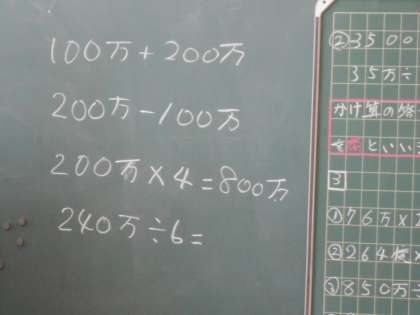 100万+200万
200万-100万
200万×4=800万
240万÷6=
②3500
35万÷
かけ算の
といい
3
①76万×
②264
③850万÷